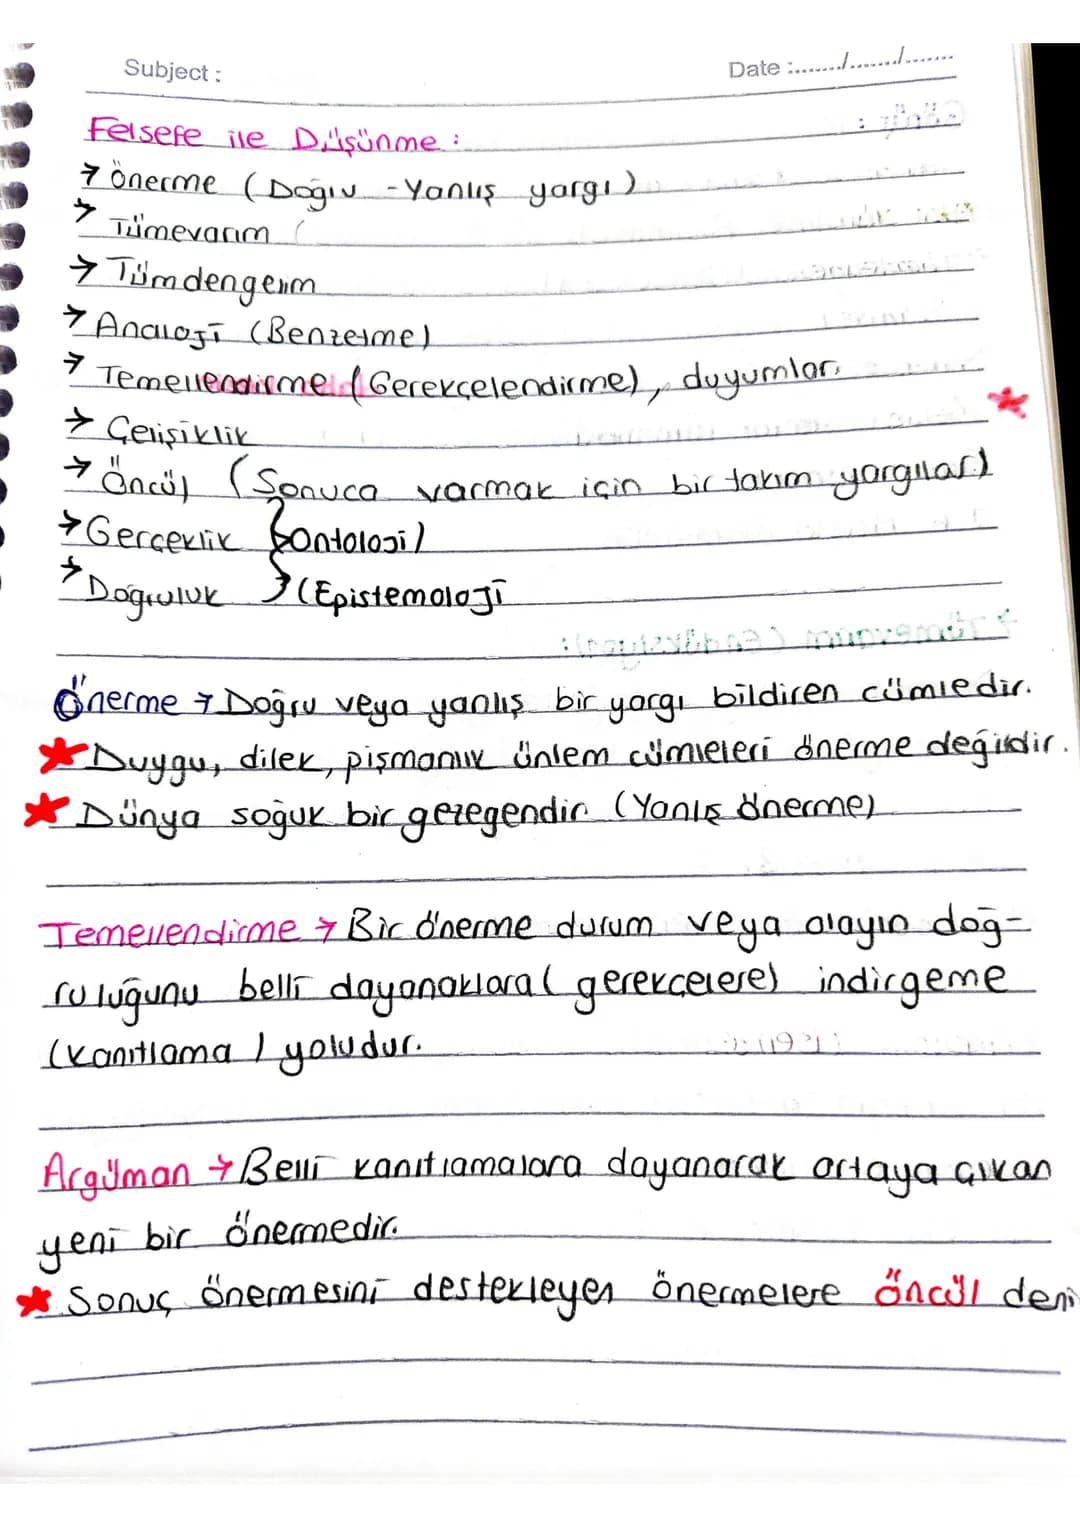 Subject :
Date :......../......../........
Felsefe ile Düşünme :
→ Önerme (Doğru - Yanlış yargı)
→ Tümevarım (
→ Tümdengelim
→ Analoji (Benzetme)
→ Temellendirme (Gerekçelendirme), duyumlar
→ Çelişiklik
→ Öncül (Sonuca varmak için bir takım yargılar)
→ Gerçeklik (Ontoloji)
→ Doğruluk (Epistemoloji
Önerme → Doğru veya yanlış bir yargı bildiren cümledir.
★ Duygu, dilek, pişmanlık ünlem cümleleri önerme değildir.
★ Dünya soğuk bir gezegendir. (Yanlış önerme)
Temellendirme → Bir önerme durum veya olayın doğ-
ruluğunu belli dayanaklara (gerekçelere) indirgeme
(kanıtlama) yoludur.
Argüman → Belli kanıtlamalara dayanarak ortaya çıkan
yeni bir önermedir.
★ Sonuç önermesini destekleyen önermelere öncül deni